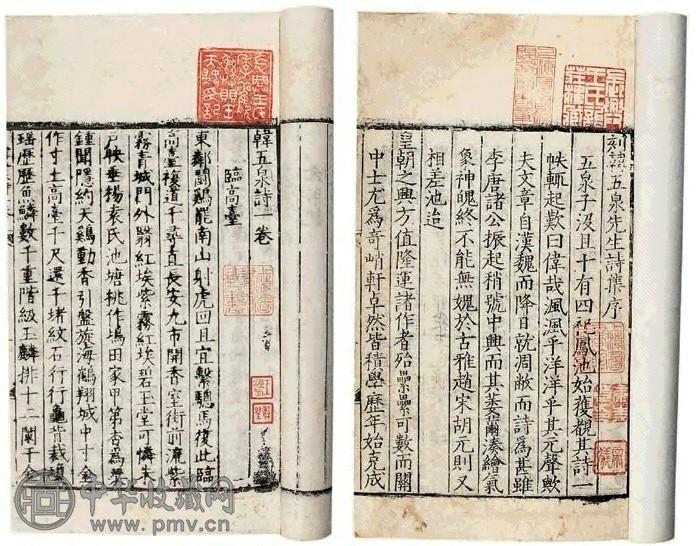 刻韓五泉先生詩集序
五泉子沒且十有四祀鳳池始獲觀其詩一
帙輒起歎曰偉哉渢渢乎洋洋乎其元聲歟
夫文章自漢魏而降日就凋敝而詩為甚雖
李唐諸公振起稍號中興而其萎薾湊繪氣
象神魄終不能無媿於古雅趙宋胡元則又
相差池迨
皇朝之興方值隆運諸作者殆纍纍可數而關
中士尤為奇峭軒卓然皆積學歷年始克成
韓五泉詩一卷
臨高臺
東鄰鬪鷄罷南山射虎回且宜繫驄馬復此臨
高臺複道千尋直長安九市開香室街前流紫
霧青城門外翳紅埃紫霧紅埃碧玉堂可憐朱
戶映垂楊袁氏池塘桃作塢田家甲第杏為
鍾聞隱約天鷄動香引盤旋海鶴翔城中寸金
作寸土高臺千尺還千堵紋石行行龜背裁
瑤歷歷魚鱗數千重階級玉麟排十二闌干金
中华收藏网
www.pmv.cn